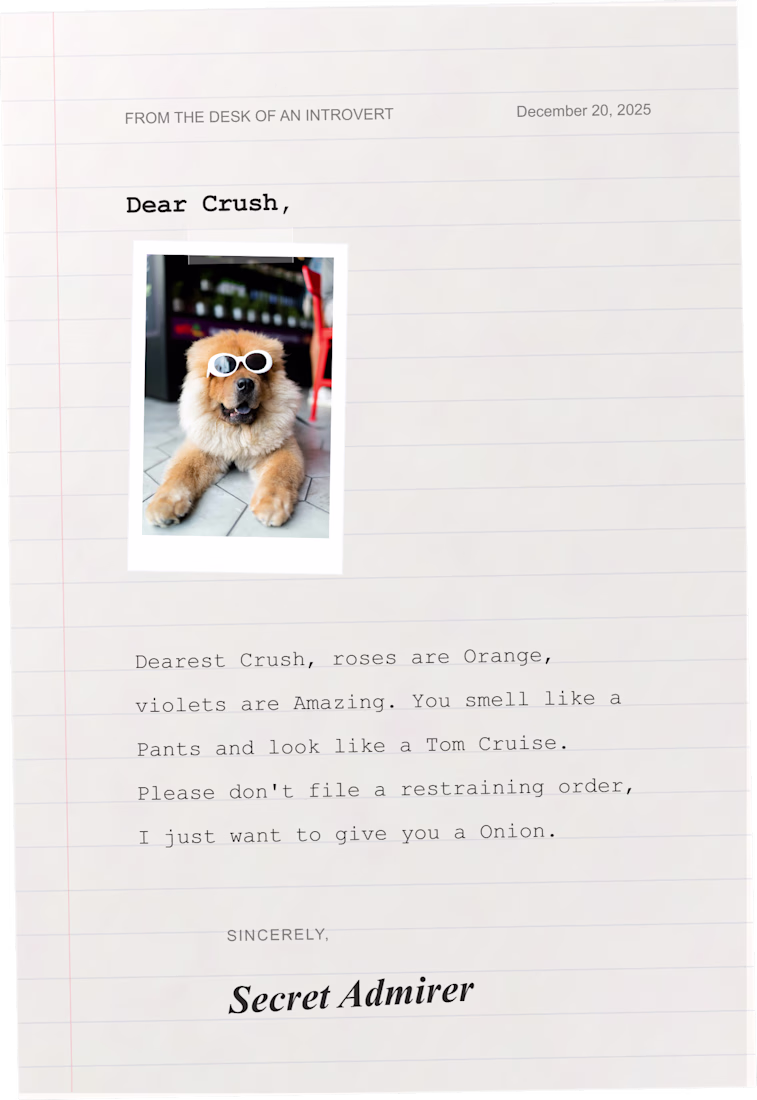 FROM THE DESK OF AN INTROVERT
December 20, 2025
Dear Crush,
Dearest Crush, roses are Orange,
violets are Amazing. You smell like a
Pants and look like a Tom Cruise.
Please don't file a restraining order,
I just want to give you a Onion.
SINCERELY,
Secret Admirer